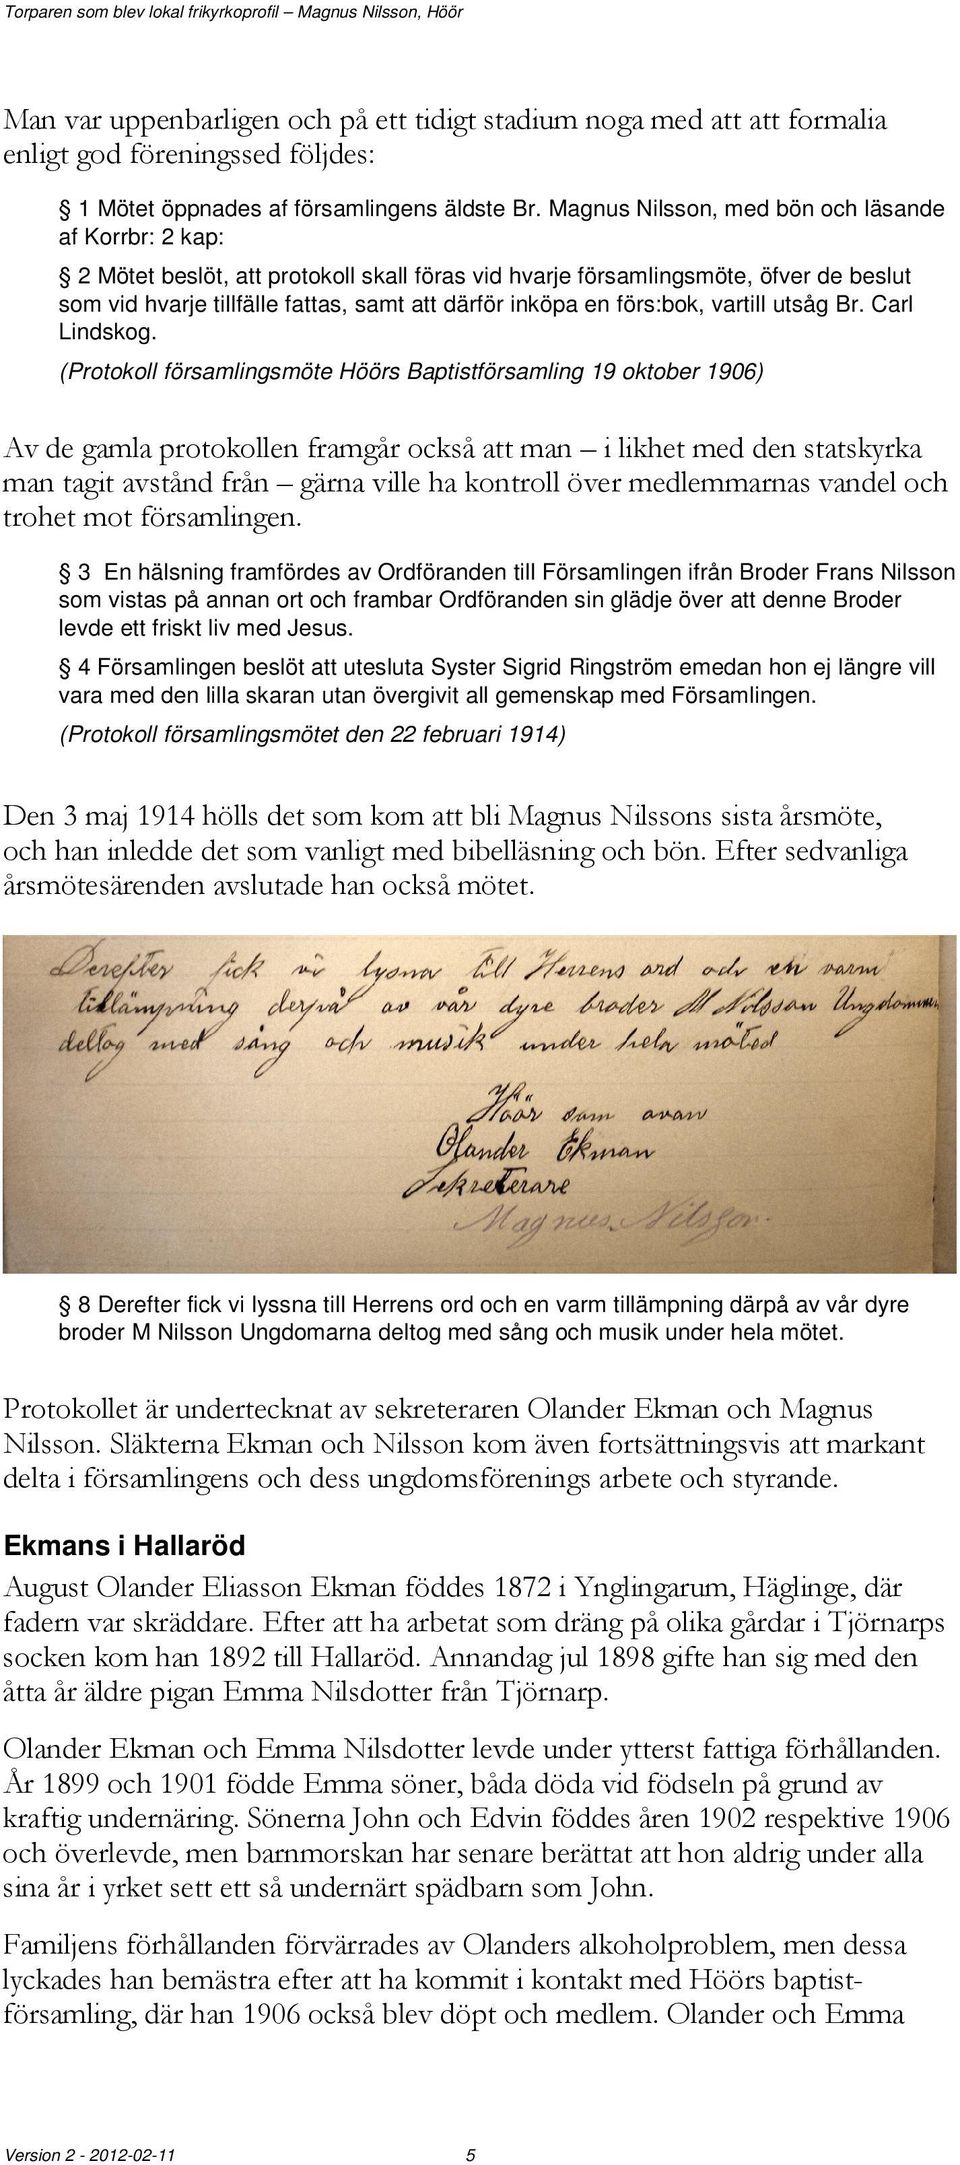 Torparen som blev lokal frikyrkoprofil – Magnus Nilsson, Höör
Man var uppenbarligen och på ett tidigt stadium noga med att att formalia
enligt god föreningssed följdes:
§ 1 Mötet öppnades af församlingens äldste Br. Magnus Nilsson, med bön och läsande
af Korrbr: 2 kap:
§ 2 Mötet beslöt, att protokoll skall föras vid hvarje församlingsmöte, öfver de beslut
som vid hvarje tillfälle fattas, samt att därför inköpa en förs:bok, vartill utsåg Br. Carl
Lindskog.
(Protokoll församlingsmöte Höörs Baptistförsamling 19 oktober 1906)
Av de gamla protokollen framgår också att man – i likhet med den statskyrka
man tagit avstånd från – gärna ville ha kontroll över medlemmarnas vandel och
trohet mot församlingen.
§ 3 En hälsning framfördes av Ordföranden till Församlingen ifrån Broder Frans Nilsson
som vistas på annan ort och frambar Ordföranden sin glädje över att denne Broder
levde ett friskt liv med Jesus.
§ 4 Församlingen beslöt att utesluta Syster Sigrid Ringström emedan hon ej längre vill
vara med den lilla skaran utan övergivit all gemenskap med Församlingen.
(Protokoll församlingsmötet den 22 februari 1914)
Den 3 maj 1914 hölls det som kom att bli Magnus Nilssons sista årsmöte,
och han inledde det som vanligt med bibelläsning och bön. Efter sedvanliga
årsmötesärenden avslutade han också mötet.
Derefter fick vi lyssna till Herrens ord och en varm
tillämpning derpå av vår dyre broder M Nilsson Ungdommar
deltog med sång och musik under hela möted
Höör som ovan
Olander Ekman
Sekreterare
Magnus Nilsson.
§ 8 Derefter fick vi lyssna till Herrens ord och en varm tillämpning därpå av vår dyre
broder M Nilsson Ungdomarna deltog med sång och musik under hela mötet.
Protokollet är undertecknat av sekreteraren Olander Ekman och Magnus
Nilsson. Släkterna Ekman och Nilsson kom även fortsättningsvis att markant
delta i församlingens och dess ungdomsförenings arbete och styrande.
Ekmans i Hallaröd
August Olander Eliasson Ekman föddes 1872 i Ynglingarum, Häglinge, där
fadern var skräddare. Efter att ha arbetat som dräng på olika gårdar i Tjörnarps
socken kom han 1892 till Hallaröd. Annandag jul 1898 gifte han sig med den
åtta år äldre pigan Emma Nilsdotter från Tjörnarp.
Olander Ekman och Emma Nilsdotter levde under ytterst fattiga förhållanden.
År 1899 och 1901 födde Emma söner, båda döda vid födseln på grund av
kraftig undernäring. Sönerna John och Edvin föddes åren 1902 respektive 1906
och överlevde, men barnmorskan har senare berättat att hon aldrig under alla
sina år i yrket sett ett så undernärt spädbarn som John.
Familjens förhållanden förvärrades av Olanders alkoholproblem, men dessa
lyckades han bemästra efter att ha kommit i kontakt med Höörs baptist-
församling, där han 1906 också blev döpt och medlem. Olander och Emma
Version 2 - 2012-02-11 5